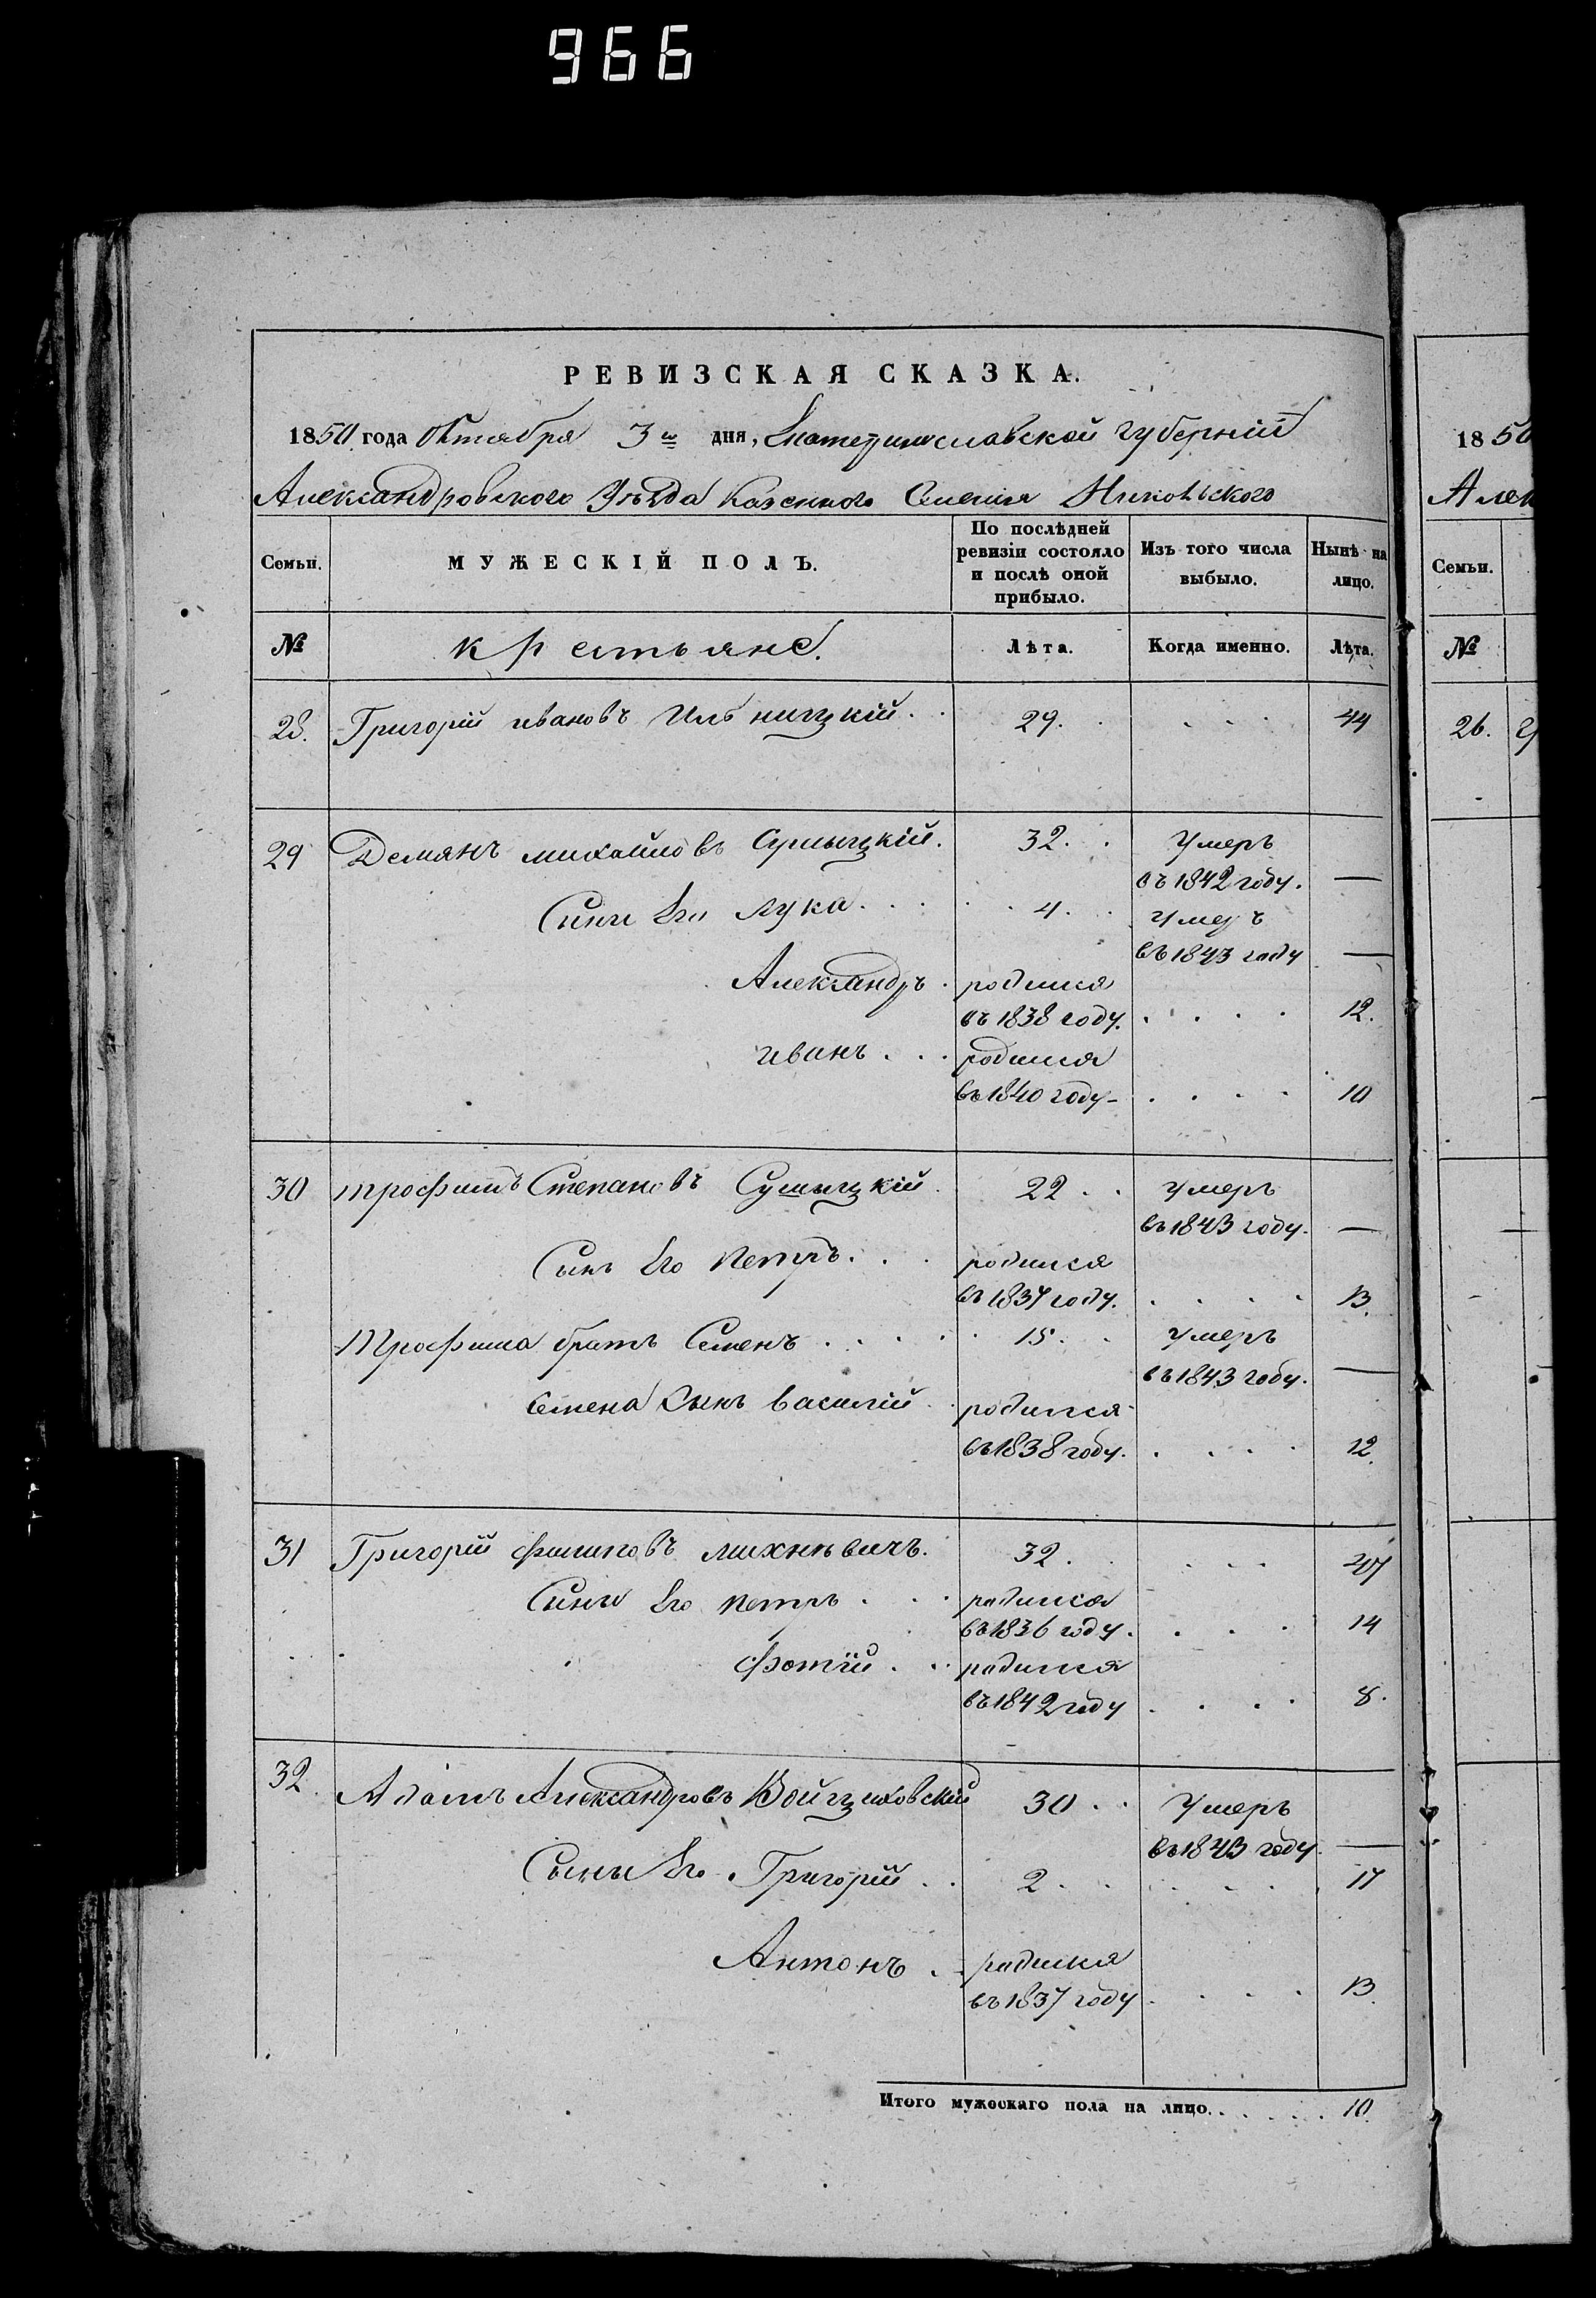 966
РЕВИЗСКАЯ СКАЗКА.
1850 года Октября 3го дня, Екатеринославской губерніи
Александровского Уѣзда Казенного Селенія Никольского
Семьи. МУЖЕСКІЙ ПОЛЪ. По послѣдней ревизіи состояло и послѣ оной прибыло. Изъ того числа выбыло. Нынѣ на лицо.
№ крестьяне. Лѣта. Когда именно. Лѣта.
28. Григорій ивановъ Ильницкій . . 29. . . . . 44
29 Демянъ михайловъ Сулицкій. 32. . Умеръ
въ 1842 году. —
Сыны Его Лука . . . . 4. . Умеръ
въ 1843 году —
Александръ . родился
въ 1838 году. . . . . 12.
иванъ . . . родился
въ 1840 году . . . . 10
30 трофимъ Степановъ Сулицкій. 22 . . умеръ
въ 1843 году. —
Сынъ Его петръ . . . родился
въ 1837 году. . . . . 13.
Трофима братъ Семенъ . . . . . 15. . умеръ
въ 1843 году. —
Семена Сынъ василій . родился
въ 1838 году. . . . . 12.
31 Григорій филиповъ михневичъ. 32. . . . . 47
Сыны Его петръ . . . родился
въ 1836 году. . . . 14
фотій . . . родился
въ 1842 году . . . . 8.
32. Адамъ Александровъ Войцеховскій 30 . . Умеръ
въ 1843 году. —
Сыны Его Григорій . . 2 . . . . . . 17
Антонъ . . родился
въ 1837 году . . . . 13.
Итого мужескаго пола на лицо. . . . . . . 10
1850
Алек
Семьи.
№
26.